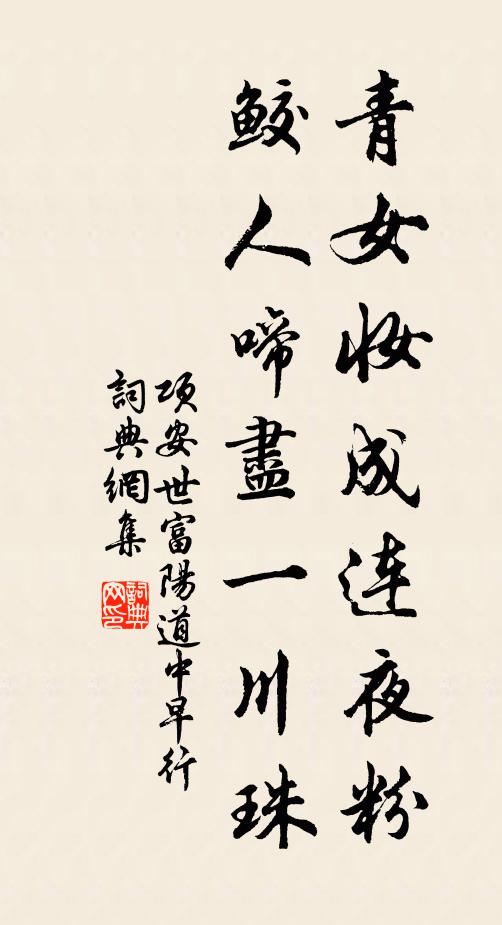 青女妝成连夜粉
鲛人啼盡一川珠
项安世富陽道中早行
詞典網集
詞典网印